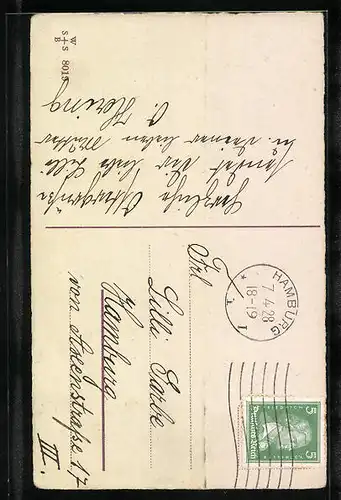 W
S+S
B
8015
Herzliche Ostergrüße
sendet Dir liebe Lilli
u. Deiner lieben Mutter
HAMBURG
7.4.28
18-19
1
5 5
Deutsches Reich
Frl.
Lilli Garbe
Hamburg
von Essenstraße 17
III.